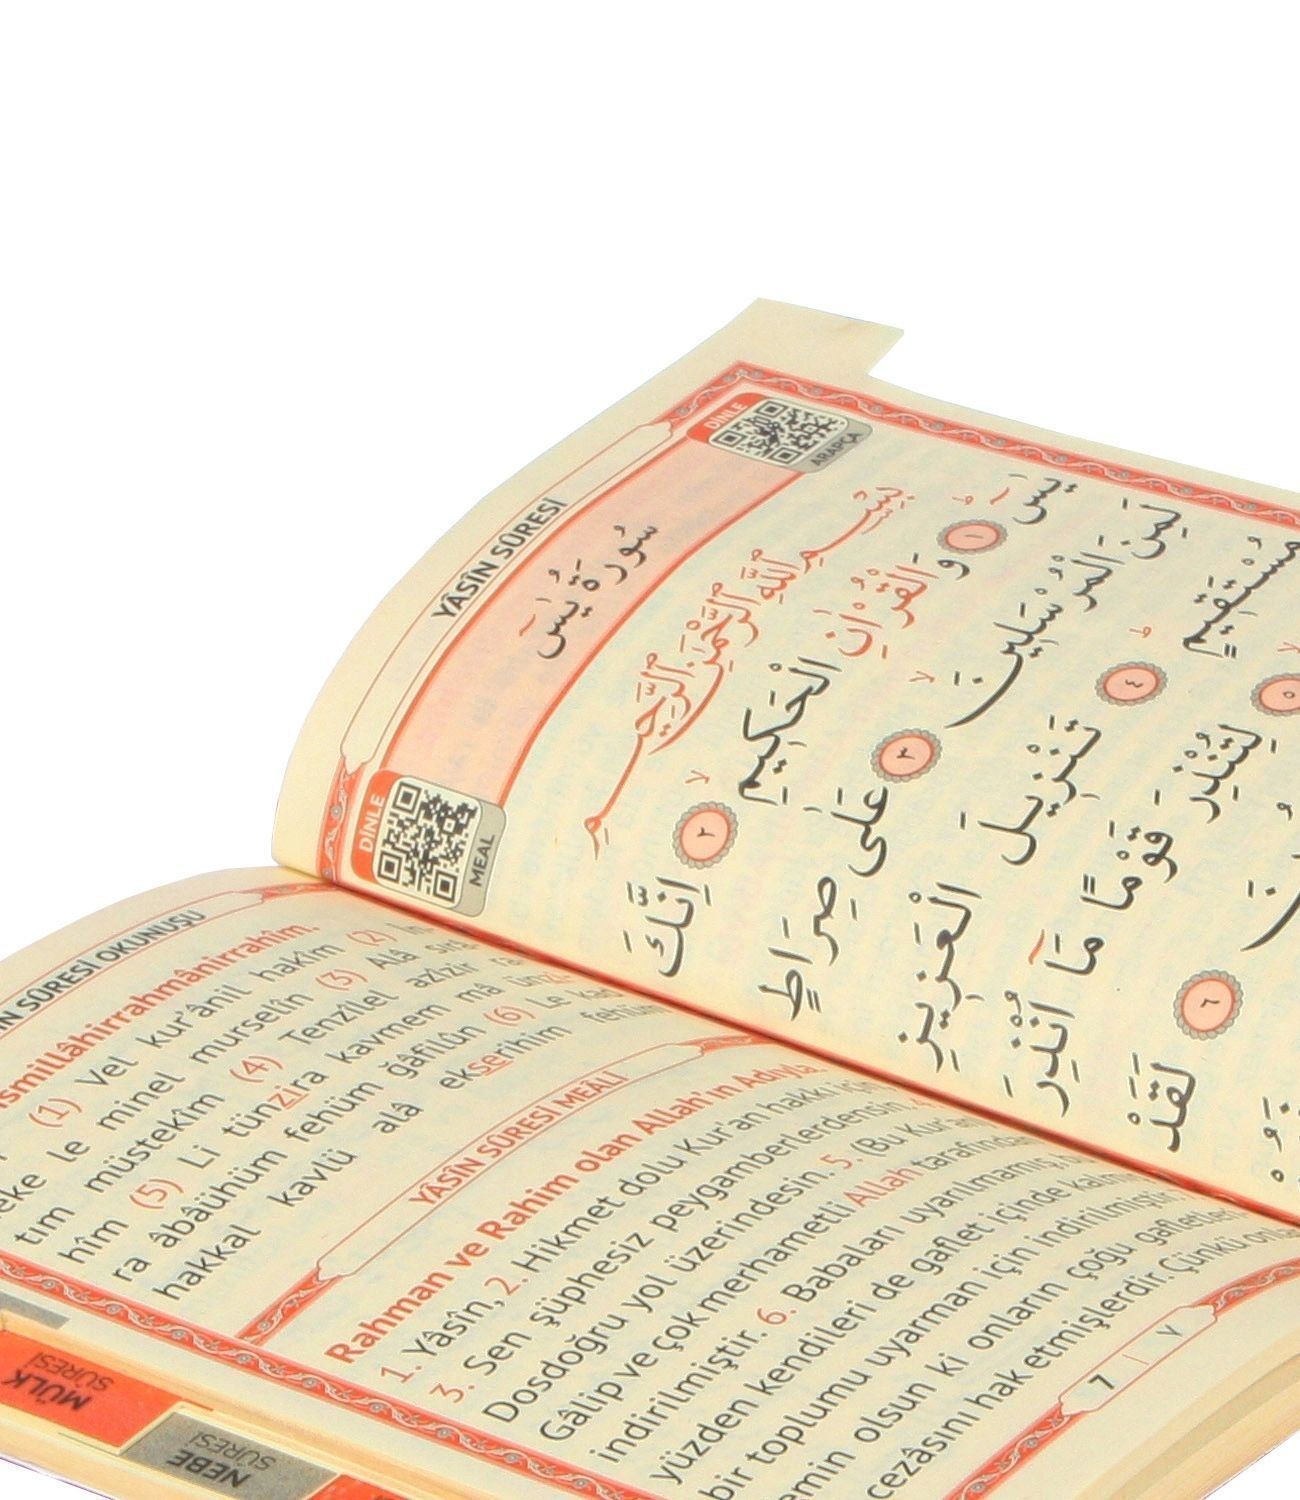 YÂSÎN SÛRESİ
DİNLE
ARAPÇA
سُورَةُ يٰسٓ
DİNLE
MEAL
بِسْمِ اللّٰهِ الرَّحْمٰنِ الرَّحِيمِ
يٰسٓ ۚ ﴿١﴾ وَالْقُرْاٰنِ الْحَكِيمِ ۙ ﴿٢﴾ اِنَّكَ
لَمِنَ الْمُرْسَلِينَ ۙ ﴿٣﴾ عَلٰى صِرَاطٍ
مُسْتَقِيمٍ ۜ ﴿٤﴾ تَنْزِيلَ الْعَزِيزِ
ۙ ﴿٥﴾ لِتُنْذِرَ قَوْمًا مَٓا اُنْذِرَ
﴿٦﴾ لَقَدْ
SÛRESİ OKUNUŞU
smillâhirrahmânirrahîm.
(1) Vel kur'ânil hakîm (2) İn
neke le minel murselîn (3) Alâ sırâ
tım müstekîm (4) Tenzîlel azîzir ra
hîm (5) Li tünzira kavmem mâ ünzi
ra âbâühüm fehüm ğâfilûn (6) Le kad
hakkal kavlü alâ ekserihim fehüm
YÂSÎN SÛRESİ MEÂLİ
Rahman ve Rahim olan Allah'ın Adıyla.
1. Yâsîn, 2. Hikmet dolu Kur'an hakkı için
3. Sen şüphesiz peygamberlerdensin. 4.
Dosdoğru yol üzerindesin. 5. (Bu Kur'an)
Gâlip ve çok merhametli Allah tarafından
indirilmiştir. 6. Babaları uyarılmamış, bu
yüzden kendileri de gaflet içinde kalmış
bir toplumu uyarman için indirilmiştir.
emin olsun ki onların çoğu gafletleri
cezâsını hak etmişlerdir. Çünkü onlar
7 | ٧
MÜLK
SÛRESİ
NEBE
SÛRESİ